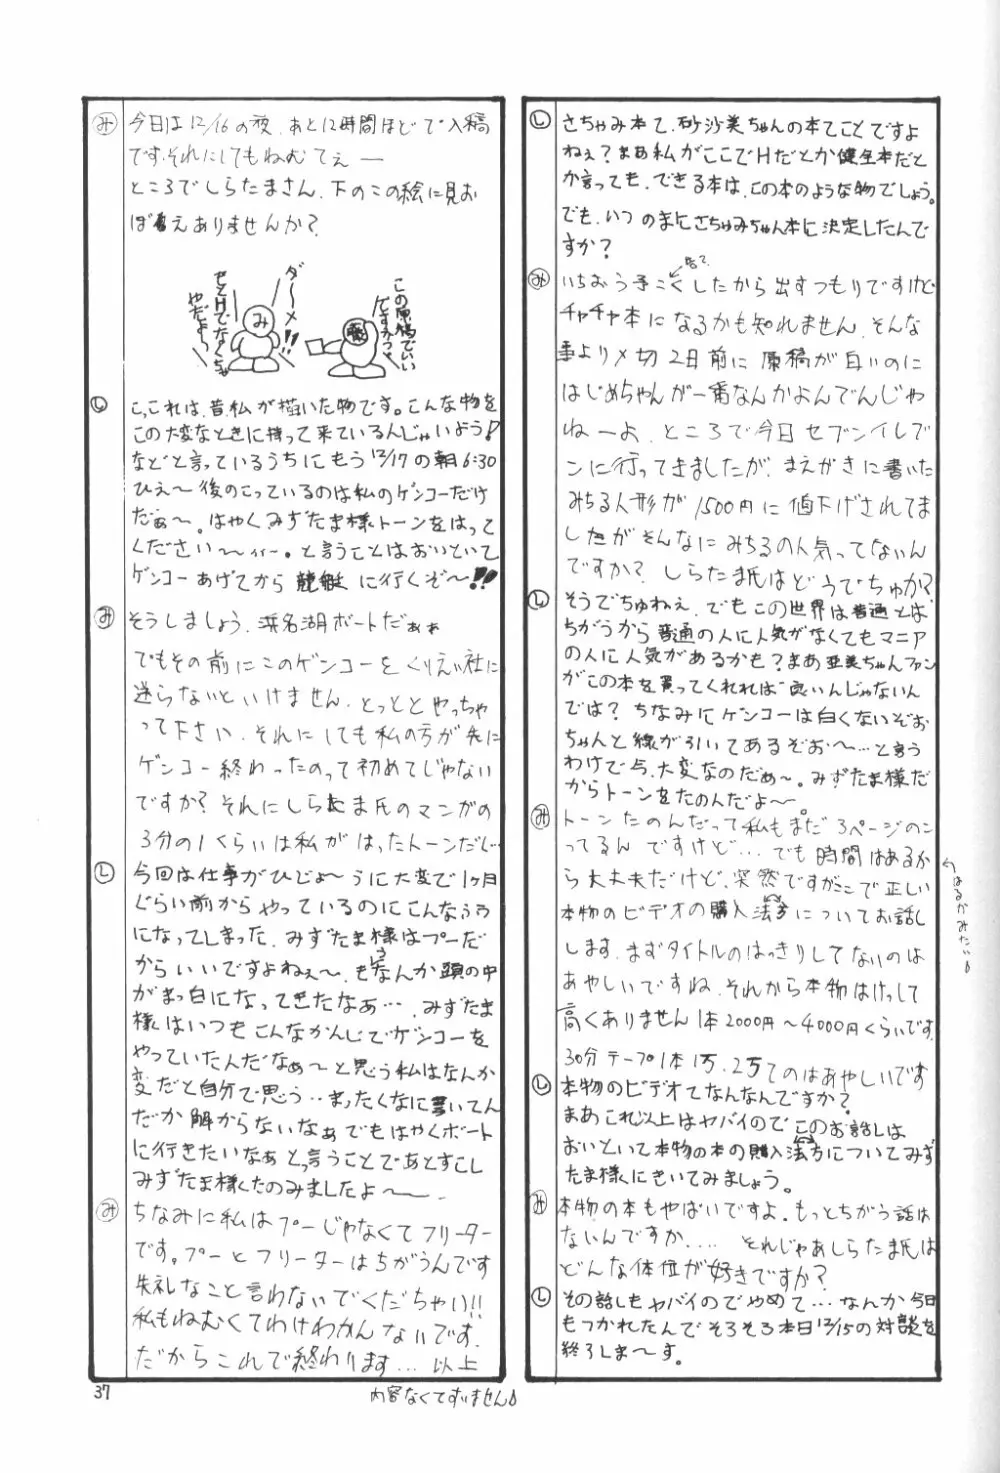 し さちゃみ本て、砂沙美ちゃんの本てことですよ
ねぇ？まあ私がここでHだとか健全本だと
か言っても、できる本は、この本のような物でしょう。
でも、いつのまにさちゅみちゃん本に決定したんで
すか？
み いちおう予こくしたから出すつもりですけど
チャチャ本になるかも知れません、そんな
事より〆切2日前に原稿が白いのに
はじめちゃんが一番なんかよんでんじゃ
ねーよ、ところで今日セブンイレブ
ンに行ってきましたが、まえがきに書いた
みちる人形が1500円に値下げされてま
したがそんなにみちるの人気ってないん
ですか？しらたま氏はどうでちゅか？
し そうでちゅねぇ、でもこの世界は普通とは、
ちがうから普通の人に人気がなくてもマニア
の人に人気があるかも？まあ亜美ちゃんファン
がこの本を買ってくれれば良いんじゃないん
では？ちなみにゲンコーは白くないぞお
ちゃんと線が引いてあるぞお〜…と言う
わけで今、大変なのだぁ〜。みずたま様だ
からトーンをたのんだよ〜。
み トーンたのんだって私もまだ3ページのこ
ってるんですけど…でも時間はあるか
ら大丈夫だけど、突然ですがここで正しい
本物のビデオの購入法方についてお話し
します、まずタイトルのはっきりしてないのは
あやしいですね、それから本物はけっして
高くありません1本2000円〜4000円くらいです
30分テープ1本1万、2万てのはあやしいです
し 本物のビデオてなんなんですか？
まあこれ以上はヤバイのでこのお話しは
おいといて本物の本の購入法方についてみず
たま様にきいてみましょう。
み 本物の本もやばいですよ、もっとちがう話は
ないんですか.... それじゃあしらたま氏は
どんな体位が好きですか？
し その話しもヤバイのでやめて…なんか今日
もつかれたんでそろそろ本日12/15の対談を
終了しま〜す。
み 今日は12/16の夜、あと12時間ほどで入稿
です、それにしてもねむてぇー
ところでしらたまさん、下のこの絵に見お
ぼえありませんか？
この原稿でいい
ですかっ？
ダ〜メ!!
せとHでなくちゃ
やだよっ
み
し こ、これは、昔、私が描いた物です。こんな物を
この大変なときに持って来ている人じゃいよう！
などと言っているうちにもう12/17の朝6:30
ひえ〜後のこっているのは私のゲンコーだけ
だぁ〜。はやくみずたま様トーンをはって
ください〜。と言うことはおいといて
ゲンコーあげてから競艇に行くぞ〜!!
み そうしましょう、浜名湖ボートだぁぁ
でもその前にこのゲンコーをくりえい社に
送らないといけません、とっととやっちゃ
って下さい、それにしても私の方が先に
ゲンコー終わったのって初めてじゃない
ですか？それにしらたま氏のマンガの
3分の1くらいは私がはったトーンだし
し 今回は仕事がひじょ〜うに大変で1ヶ月
ぐらい前からやっているのにこんなふう
になってしまった、みずたま様はプーだ
からいいですよねぇ〜、もうなんか頭の中
がまっ白になってきたなあ…、みずたま
様はいつもこんなかんじでゲンコーを
やっていたんだなぁ〜と思う私はなんか
変だと自分で思う…まったくなに書いてん
だか解からないなぁでもはやくボート
に行きたいなぁと言うことであとすこし
みずたま様くたのみましたよ〜
み ちなみに私はプーじゃなくてフリーター
です。プーとフリーターはちがうんです
失礼なこと言わないでくだちゃい!!
私もねむくてわけわかんないです、
だからこれで終わります…以上
37
内容なくてすいません